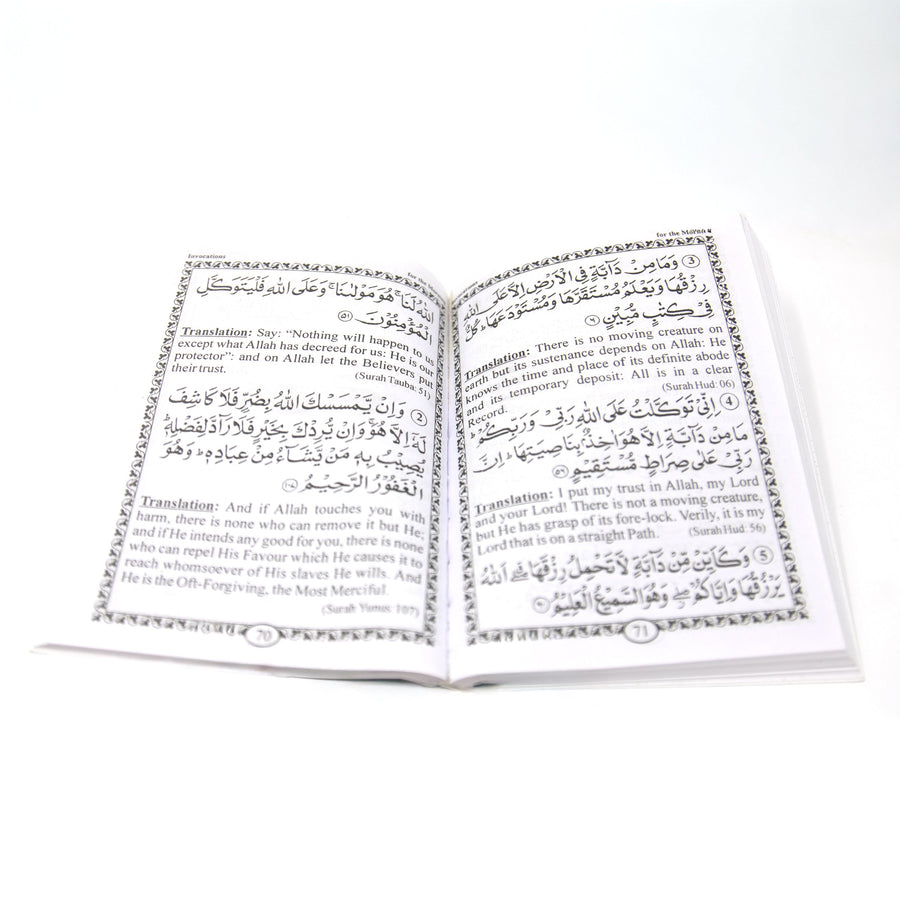 Invocations
for
اللهُ لَنَا ۚ هُوَ مَوْلٰىنَا ۚ وَعَلَى اللهِ فَلْيَتَوَكَّلِ
الْمُؤْمِنُوْنَ ٥١
Translation: Say: “Nothing will happen to us
except what Allah has decreed for us: He is our
protector”: and on Allah let the Believers put
their trust.
(Surah Tauba: 51)
② وَاِنْ يَّمْسَسْكَ اللهُ بِضُرٍّ فَلَا كَاشِفَ
لَهٗٓ اِلَّا هُوَ ۚ وَاِنْ يُّرِدْكَ بِخَيْرٍ فَلَا رَآدَّ لِفَضْلِهٖ ؕ
يُصِيْبُ بِهٖ مَنْ يَّشَآءُ مِنْ عِبَادِهٖ ؕ وَهُوَ
الْغَفُوْرُ الرَّحِيْمُ
Translation: And if Allah touches you with
harm, there is none who can remove it but He;
and if He intends any good for you, there is none
who can repel His Favour which He causes it to
reach whomsoever of His slaves He wills. And
He is the Oft-Forgiving, the Most Merciful.
(Surah Yunus: 107)
70
for the
③ وَمَا مِنْ دَآبَّةٍ فِى الْاَرْضِ اِلَّا عَلَى اللهِ
رِزْقُهَا وَيَعْلَمُ مُسْتَقَرَّهَا وَمُسْتَوْدَعَهَا ؕ كُلٌّ
فِىْ كِتٰبٍ مُّبِيْنٍ ٦
Translation: There is no moving creature on
earth but its sustenance depends on Allah: He
knows the time and place of its definite abode
and its temporary deposit: All is in a clear
Record.
(Surah Hud: 06)
④ اِنِّىْ تَوَكَّلْتُ عَلَى اللهِ رَبِّىْ وَرَبِّكُمْ ؕ
مَا مِنْ دَآبَّةٍ اِلَّا هُوَ اٰخِذٌۢ بِنَاصِيَتِهَا ؕ اِنَّ
رَبِّىْ عَلٰى صِرَاطٍ مُّسْتَقِيْمٍ ٥٦
Translation: I put my trust in Allah, my Lord
and your Lord! There is not a moving creature,
but He has grasp of its fore-lock. Verily, it is my
Lord that is on a straight Path.
(Surah Hud: 56)
⑤ وَكَاَيِّنْ مِّنْ دَآبَّةٍ لَّا تَحْمِلُ رِزْقَهَا اَللهُ
يَرْزُقُهَا وَاِيَّاكُمْ وَهُوَ السَّمِيْعُ الْعَلِيْمُ ٦٠
71